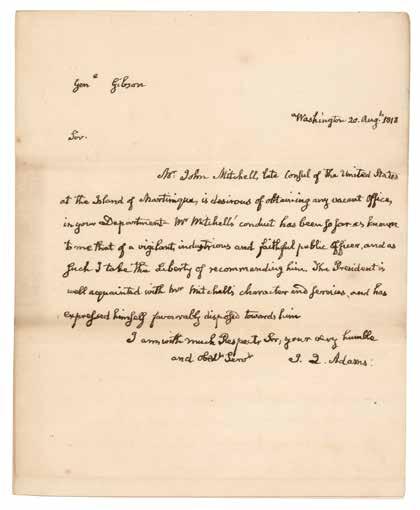 Genl Gibson
Washington 20. Augt 1818
Sir.
Mr John Mitchell, late Consul of the United States
at the Island of Martinque, is desirous of obtaining any vacant Office,
in your Department Mr Mitchell's conduct has been so far as known
to me that of a vigilant, industrious and faithful public Officer, and as
such I take the Liberty of recommending him. The President is
well acquainted with Mr Mitchell's character and services, and has
expressed himself favorably disposed towards him
I am with much Respect Sir, your very humble
and obedt Servt J. Q. Adams.